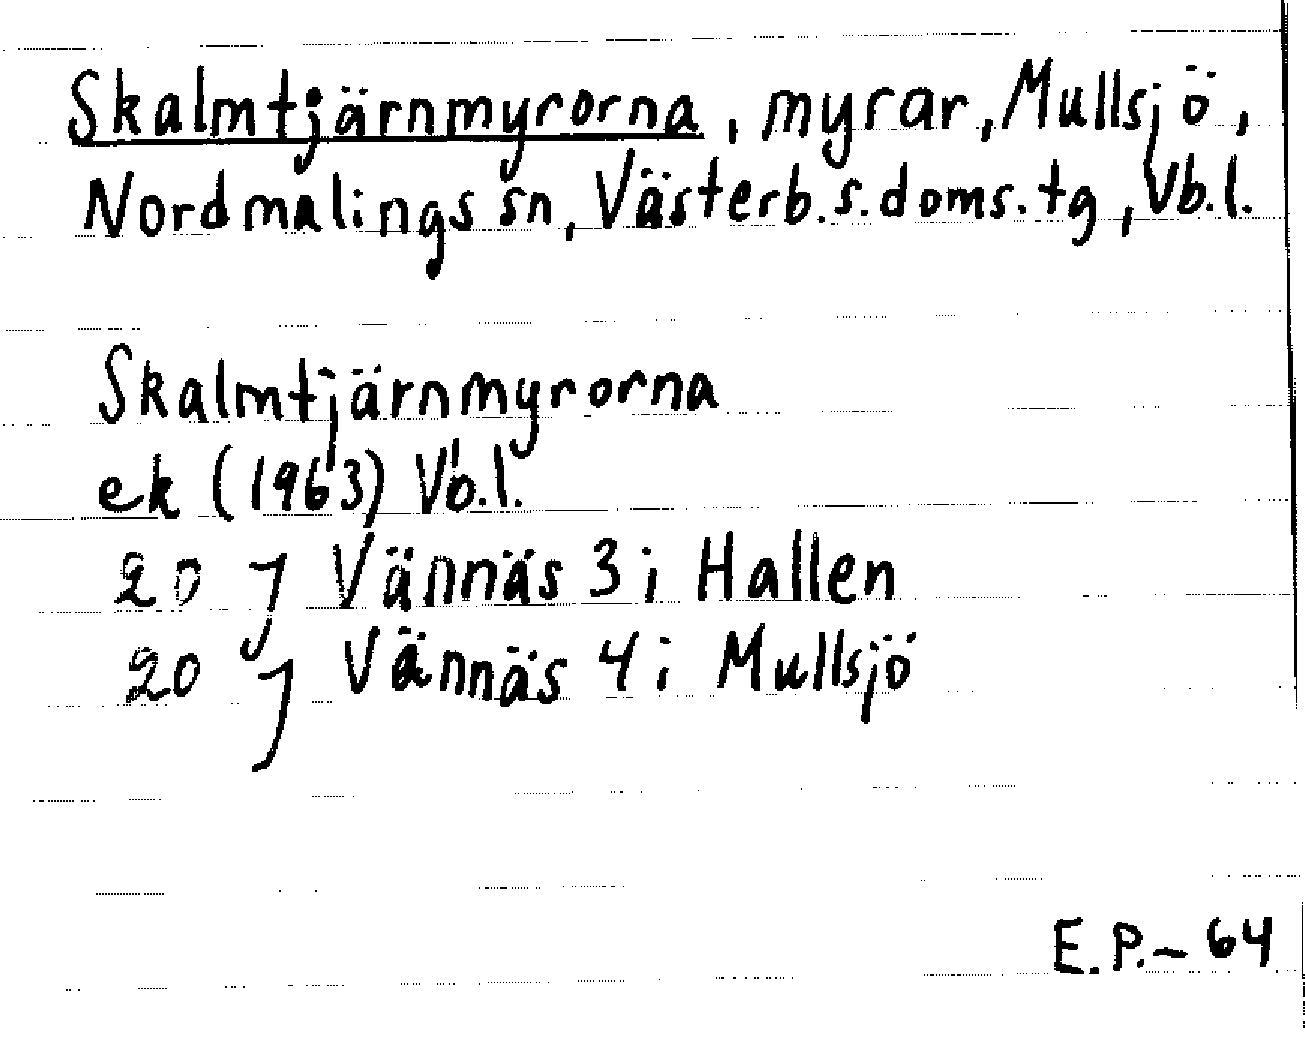 Skalmtjärnmyrorna, myrar, Mullsjö,
Nordmalings sn, Västerb. s. doms. tg, Vb. l.
Skalmtjärnmyrorna
ek (1963) Vb. l.
20 J Vännäs 3 i Hallen
20 J Vännäs 4 i Mullsjö
E.P. - 64